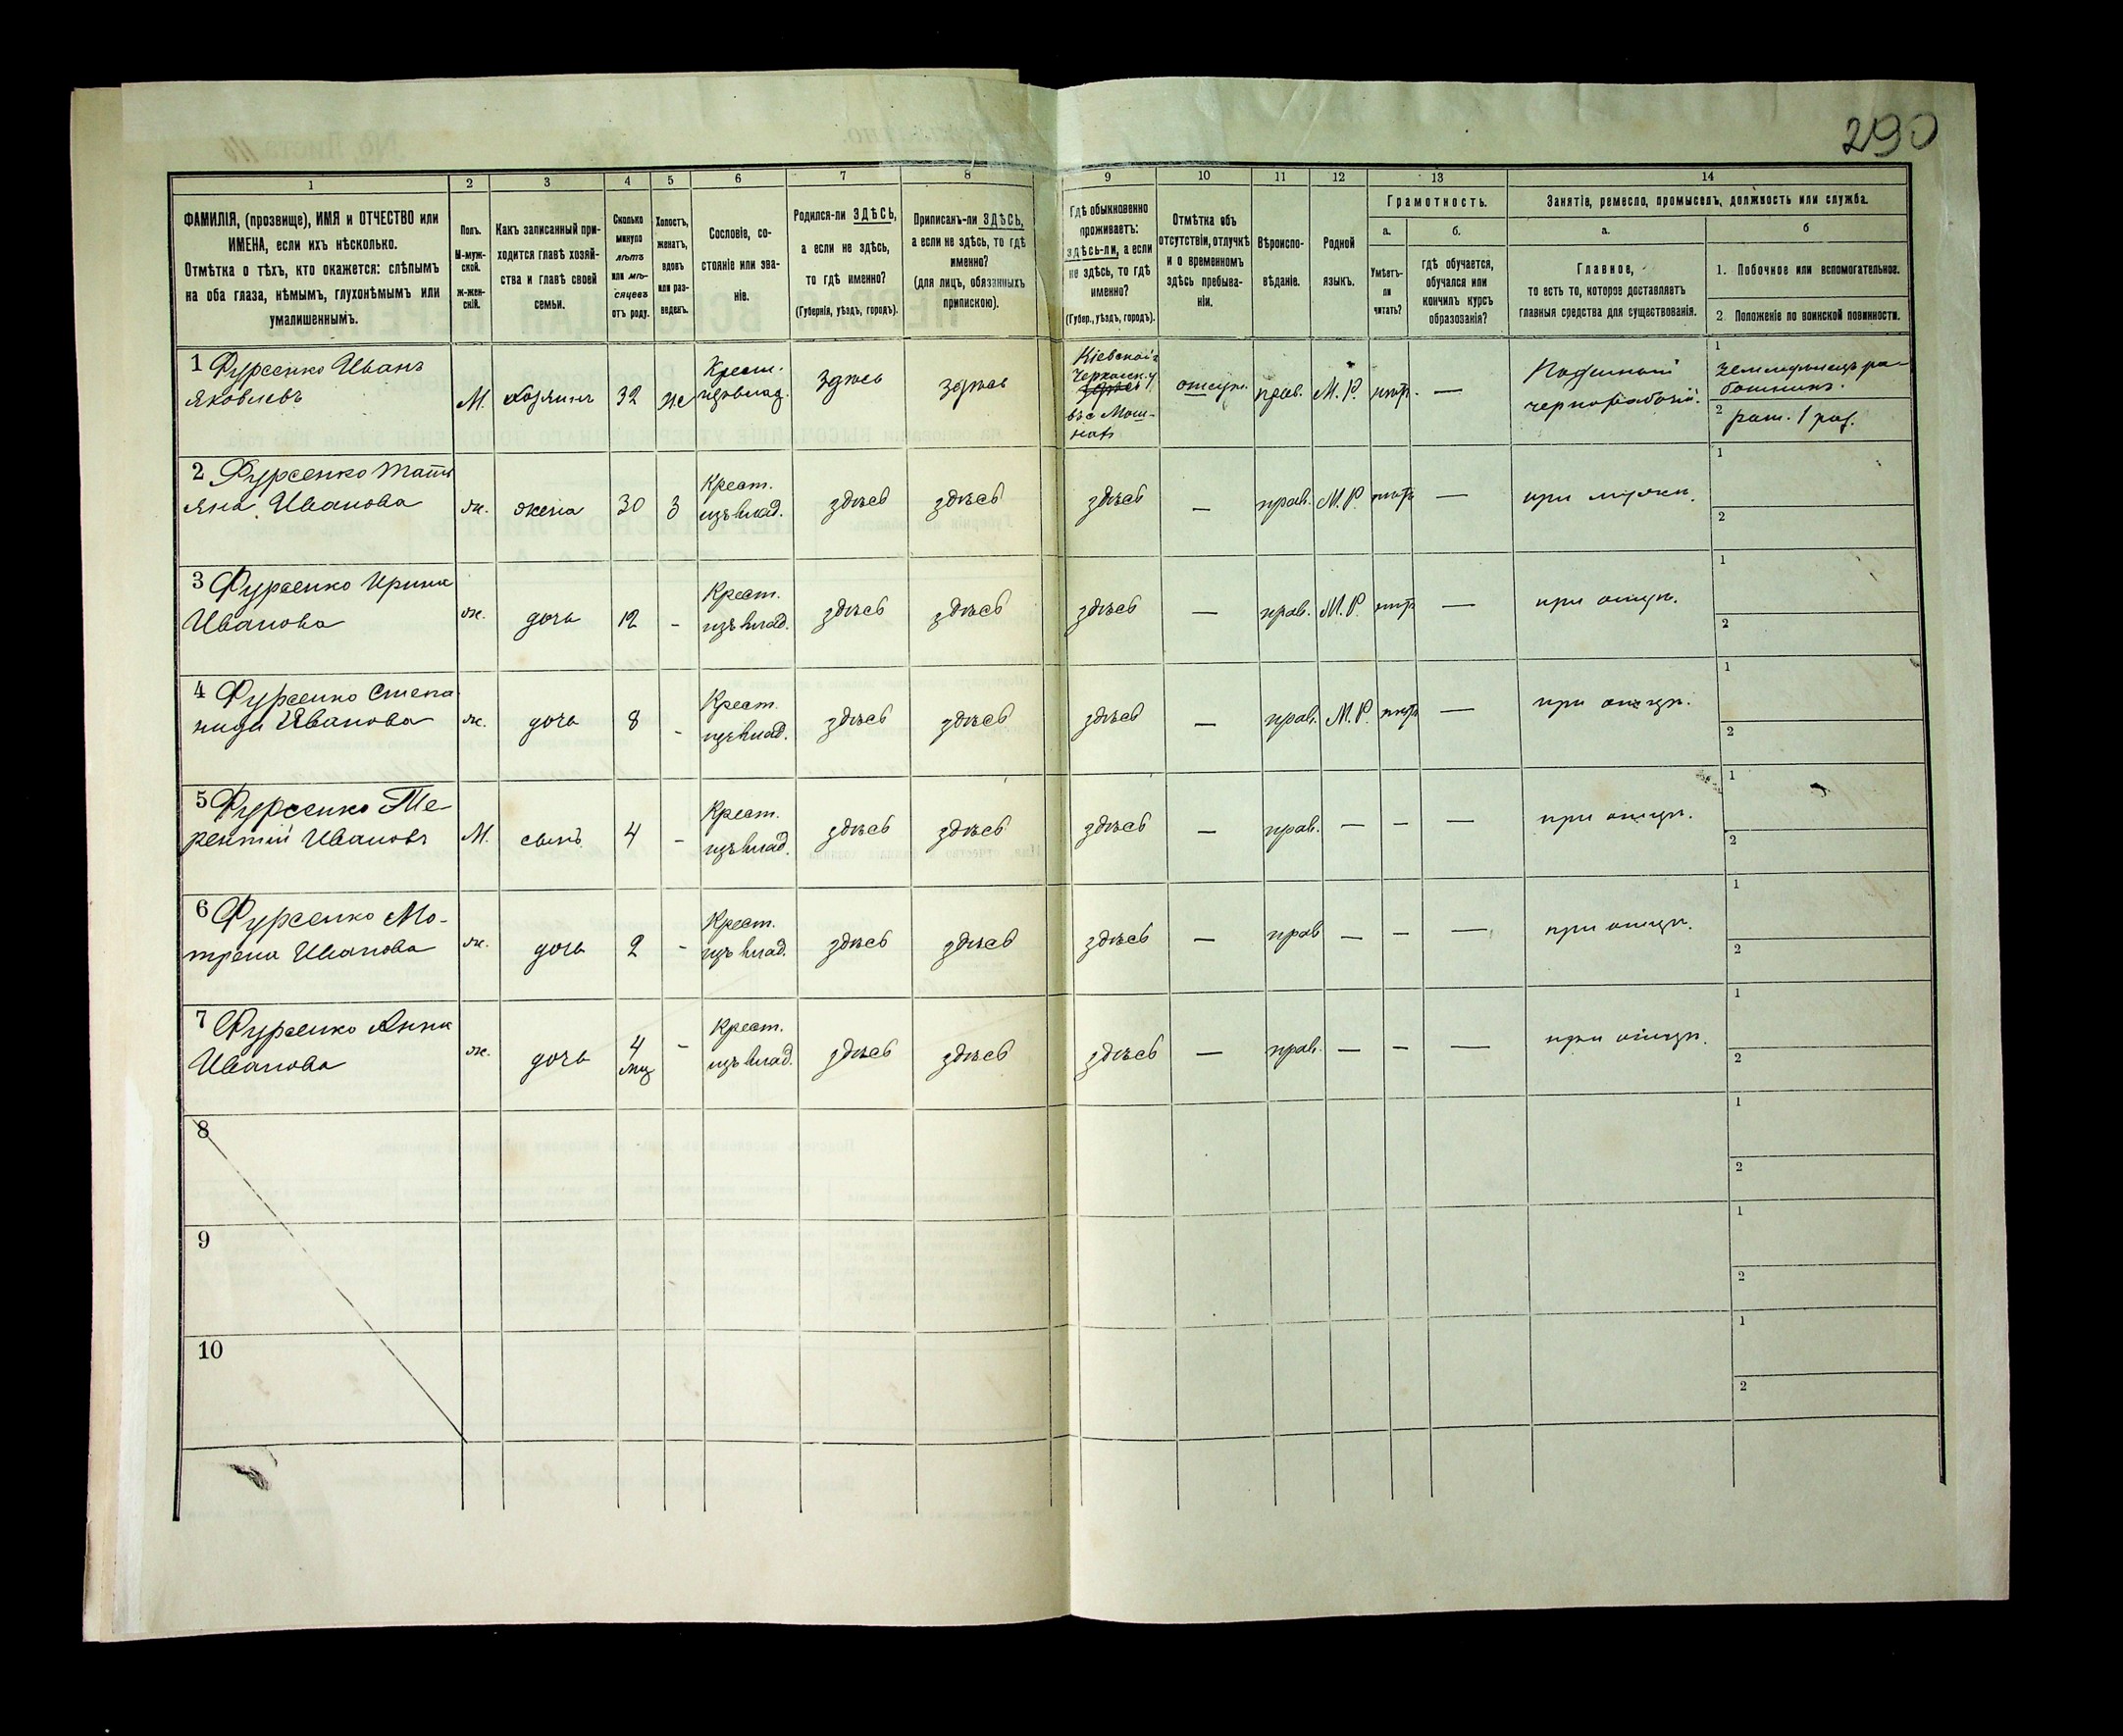 290
1
2
3
4
5
6
7
8
9
10
11
12
13
14
ФАМИЛІЯ, (прозвище), ИМЯ и ОТЧЕСТВО или
ИМЕНА, если ихъ нѣсколько.
Отмѣтка о тѣхъ, кто окажется: слѣпымъ
на оба глаза, нѣмымъ, глухонѣмымъ или
умалишеннымъ.
Полъ.
М-муж-
ской.
Ж-жен-
скій.
Какъ записанный при-
ходится главѣ хозяй-
ства и главѣ своей
семьи.
Сколько
минуло
лѣтъ
или мѣ-
сяцевъ
отъ роду.
Холостъ,
женатъ,
вдовъ
или раз-
веденъ.
Сословіе, со-
стояніе или зва-
ніе.
Родился-ли ЗДѢСЬ,
а если не здѣсь,
то гдѣ именно?
(Губернія, уѣздъ, городъ).
Приписанъ-ли ЗДѢСЬ,
а если не здѣсь, то гдѣ
именно?
(для лицъ, обязанныхъ
припискою).
Гдѣ обыкновенно
проживаетъ:
здѣсь-ли, а если
не здѣсь, то гдѣ
именно?
(Губер., уѣздъ, городъ).
Отмѣтка объ
отсутствіи, отлучкѣ
и о временномъ
здѣсь пребыва-
ніи.
Вѣроиспо-
вѣданіе.
Родной
языкъ.
Грамотность.
а.
Умѣетъ-
ли
читать?
б.
гдѣ обучается,
обучался или
кончилъ курсъ
образованія?
Занятіе, ремесло, промыселъ, должность или служба.
а.
Главное,
то есть то, которое доставляетъ
главныя средства для существованія.
б
1. Побочное или вспомогательное.
2. Положеніе по воинской повинности.
1 Фурсенко Иванъ
Яковлевъ
М.
хозяинъ
32
же
Крест.
изъ влад.
здѣсь
здѣсь
Кіевской г
Черкасск. у
здѣсь
въ с Мош-
нахъ
отсут.
прав.
М. Р.
нѣтъ
—
Поденный
чернорабочій.
1
Земледѣлецъ ра-
ботникъ.
2 рат. 1 раз.
2 Фурсенко Татья
яна Иванова
ж.
жена
30
З
Крест.
изъ влад.
здѣсь
здѣсь
здѣсь
—
прав.
М. Р.
нѣтъ
—
при мужѣ.
1
2
3 Фурсенко Ирина
Иванова
ж.
дочь
12
-
Крест.
изъ влад.
здѣсь
здѣсь
здѣсь
—
прав.
М. Р.
нѣтъ
—
при отцѣ.
1
2
4 Фурсенко Степа
нида Иванова
ж.
дочь
8
-
Крест.
изъ влад.
здѣсь
здѣсь
здѣсь
—
прав.
М. Р.
нѣтъ
—
при отцѣ.
1
2
5 Фурсенко Те-
рентій Ивановъ
М.
сынъ
4
-
Крест.
изъ влад.
здѣсь
здѣсь
здѣсь
—
прав.
—
—
—
при отцѣ.
1
2
6 Фурсенко Мо-
трена Иванова
ж.
дочь
2
-
Крест.
изъ влад.
здѣсь
здѣсь
здѣсь
—
прав
—
—
—
при отцѣ.
1
2
7 Фурсенко Анна
Иванова
ж.
дочь
4
мц
-
Крест.
изъ влад.
здѣсь
здѣсь
здѣсь
—
прав.
—
—
—
при отцѣ.
1
2
8
1
2
9
1
2
10
1
2